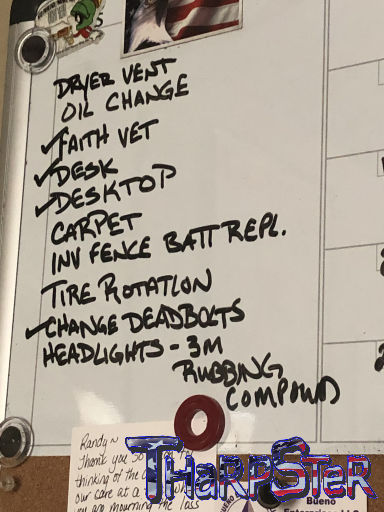 DRYER VENT
OIL CHANGE
✓FAITH VET
✓DESK
✓DESKTOP
CARPET
INV FENCE BATT REPL.
TIRE ROTATION
✓CHANGE DEADBOLTS
HEADLIGHTS - 3M
RUBBING
COMPOUND
Randy~
Thank you so for
thinking of the
our care at a
you are mourning the loss
THARPSTER
Bueno